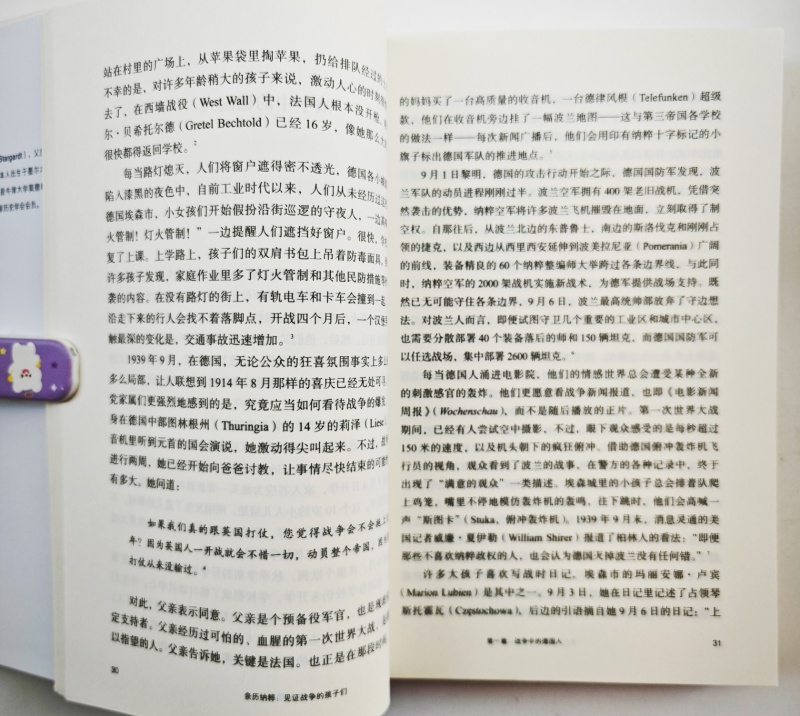 Stargardt），父
站在村里的广场上，从苹果袋里掏苹果，扔给排队经过的士
不幸的是，对许多年龄稍大的孩子来说，激动人心的时刻
去了，在西墙战役（West Wall）中，法国人根本没开
尔·贝希托尔德（Gretel Bechtold）已经 16 岁，像她那么大
很快都得返回学校。2
每当路灯熄灭，人们将窗户遮得密不透光，德国各小
陷入漆黑的夜色中，自前工业时代以来，人们从未经历过
德国埃森市，小女孩们开始假扮沿街巡逻的守夜人，一边
火管制！灯火管制！”一边提醒人们遮挡好窗户。很快，
复了上课。上学路上，孩子们的双肩书包上吊着防毒面具，
许多孩子发现，家庭作业里多了灯火管制和其他民防措施
袭的内容。在没有路灯的街上，有轨电车和卡车会撞到一起
沿走下来的行人会找不着落脚点，开战四个月后，一个汉堡
触最深的变化是，交通事故迅速增加。3
1939 年 9 月，在德国，无论公众的狂喜氛围事实上多
多么局部，让人联想到 1914 年 8 月那样的喜庆已经无处可
党家属们更强烈地感到的是，究竟应当如何看待战争的爆发
身在德国中部图林根州（Thuringia）的 14 岁的莉泽（Liese
音机里听到元首的国会演说，她激动得尖叫起来。不过，战
进行两周，她已经开始向爸爸讨教，让事情尽快结束的可能
有多大。她问道：
如果我们真的跟英国打仗，您觉得战争会不会在
年？因为英国人一开战就会不惜一切，动员整个帝国，
打仗从来没输过。4
对此，父亲表示同意。父亲是个预备役军官，也是
定支持者。父亲经历过可怕的、血腥的第一次世界大战，
以指望的人。父亲告诉她，关键是法国。也正是在那段
30
亲历纳粹：见证战争的孩子们
的妈妈买了一台高质量的收音机，一台德律风根（Telefunken）超级
款，他们在收音机旁边挂了一幅波兰地图——这与第三帝国各学校
的做法一样——每次新闻广播后，他们会用印有纳粹十字标记的小
旗子标出德国军队的推进地点。5
9 月 1 日黎明，德国的攻击行动开始之际，德国国防军发现，波
兰军队的动员进程刚刚过半。波兰空军拥有 400 架老旧战机，凭借突
然袭击的优势，纳粹空军将许多波兰飞机摧毁在地面，立刻取得了制
空权。自那往后，从波兰北边的东普鲁士，南边的斯洛伐克和刚刚占
领的捷克，以及西边从西里西安延伸到波美拉尼亚（Pomerania）广阔
的前线，装备精良的 60 个纳粹整编师大举跨过各条边界线，与此同
时，纳粹空军的 2000 架战机实施新战术，为德军提供战场支持。既
然已无可能守住各条边界，9 月 6 日，波兰最高统帅部放弃了守边想
法。对波兰人而言，即便试图守卫几个重要的工业区和城市中心区，
也需要分散部署 40 个装备落后的师和 150 辆坦克，而德国国防军可
以任选战场，集中部署 2600 辆坦克。6
每当德国人涌进电影院，他们的情感世界总会遭受某种全新
的刺激感官的轰炸。他们更愿意看战争新闻报道，也即《电影新闻
周报》（Wochenschau），而不是随后播放的正片。第一次世界大战
期间，已经有人尝试空中摄影，不过，眼下观众感受的是每秒超过
150 米的速度，以及机头朝下的疯狂俯冲。借助德国俯冲轰炸机飞
行员的视角，观众看到了波兰的战事，在警方的各种记录中，终于
出现了“满意的观众”一类描述。埃森城里的小孩子总会排着队爬
上鸡笼，嘴里不停地模仿轰炸机的轰鸣，往下跳时，他们会高喊一
声“斯图卡”（Stuka，俯冲轰炸机）。1939 年 9 月末，消息灵通的美
国记者威廉·夏伊勒（William Shirer）报道了柏林人的看法：“即便
那些不喜欢纳粹政权的人，也会认为德国灭掉波兰没有任何错。”7
许多大孩子喜欢写战时日记，埃森市的玛丽安娜·卢宾
（Marion Lubien）是其中之一。9 月 3 日，她在日记里记述了占领琴
斯托霍瓦（Częstochowa），后边的引语摘自她 9 月 6 日的日记：“上
第一章 战争中的德国人
31